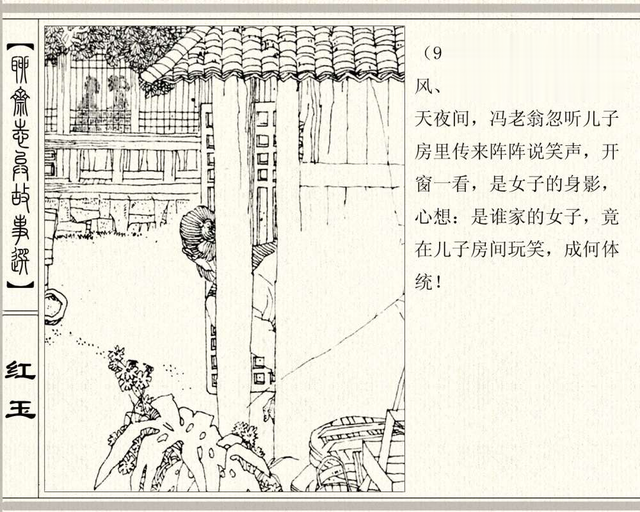 【聊斋志异故事选】
红玉
（9
风、
天夜间，冯老翁忽听儿子
房里传来阵阵说笑声，开
窗一看，是女子的身影，
心想：是谁家的女子，竟
在儿子房间玩笑，成何体
统！